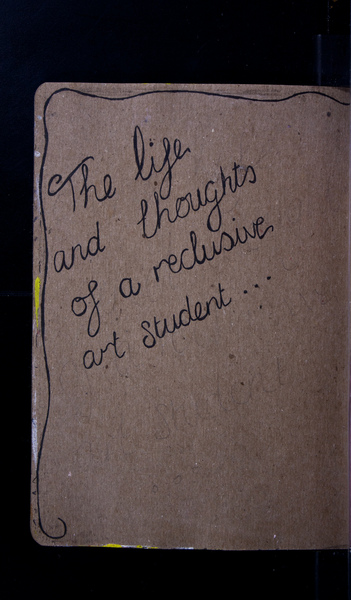 The life
and thoughts
of a reclusive
art student...